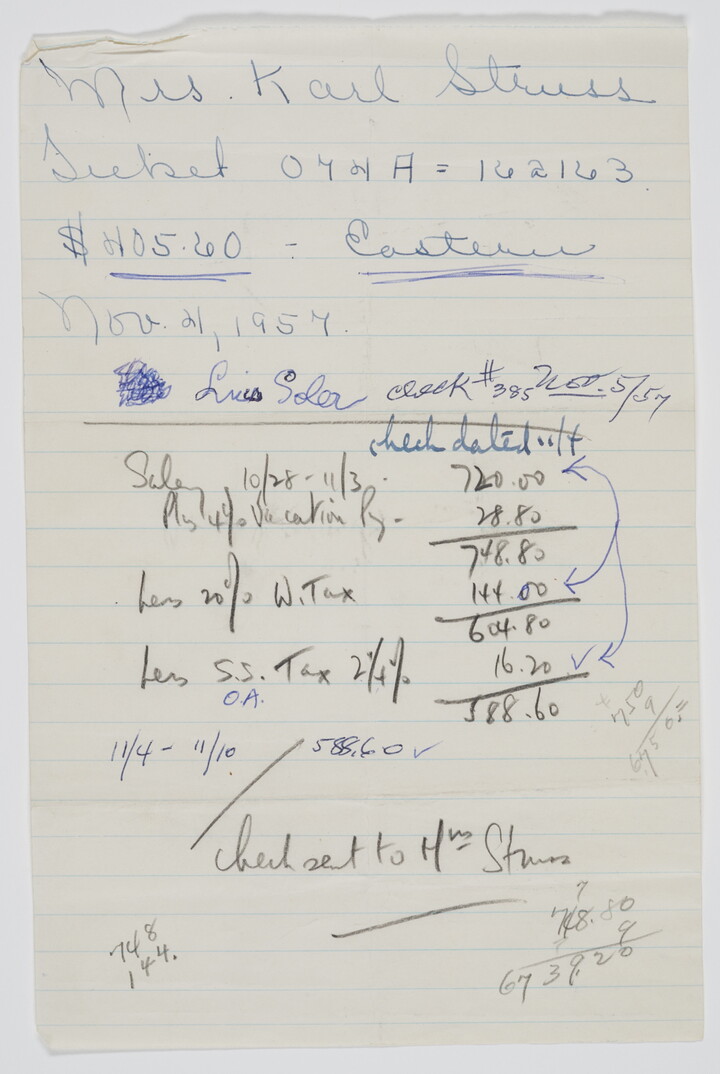 Mrs. Karl Struss
Ticket 074A = 162163
$405.60 - Eastern
Nov. 4, 1957.
Soler check #385 Nov. 5/57
check dated 11/4
Salary 10/28 - 11/3 - 720.00
Plus 4% Vacation Pay - 28.80
748.80
Less 20% W. Tax 144.00
604.80
Less S.S. Tax 2 1/4% 16.20 ✓
O.A.
588.60
11/4 - 11/10 588.60 ✓
check sent to Mrs Struss
748
144.
7
748.80
9
6739.20